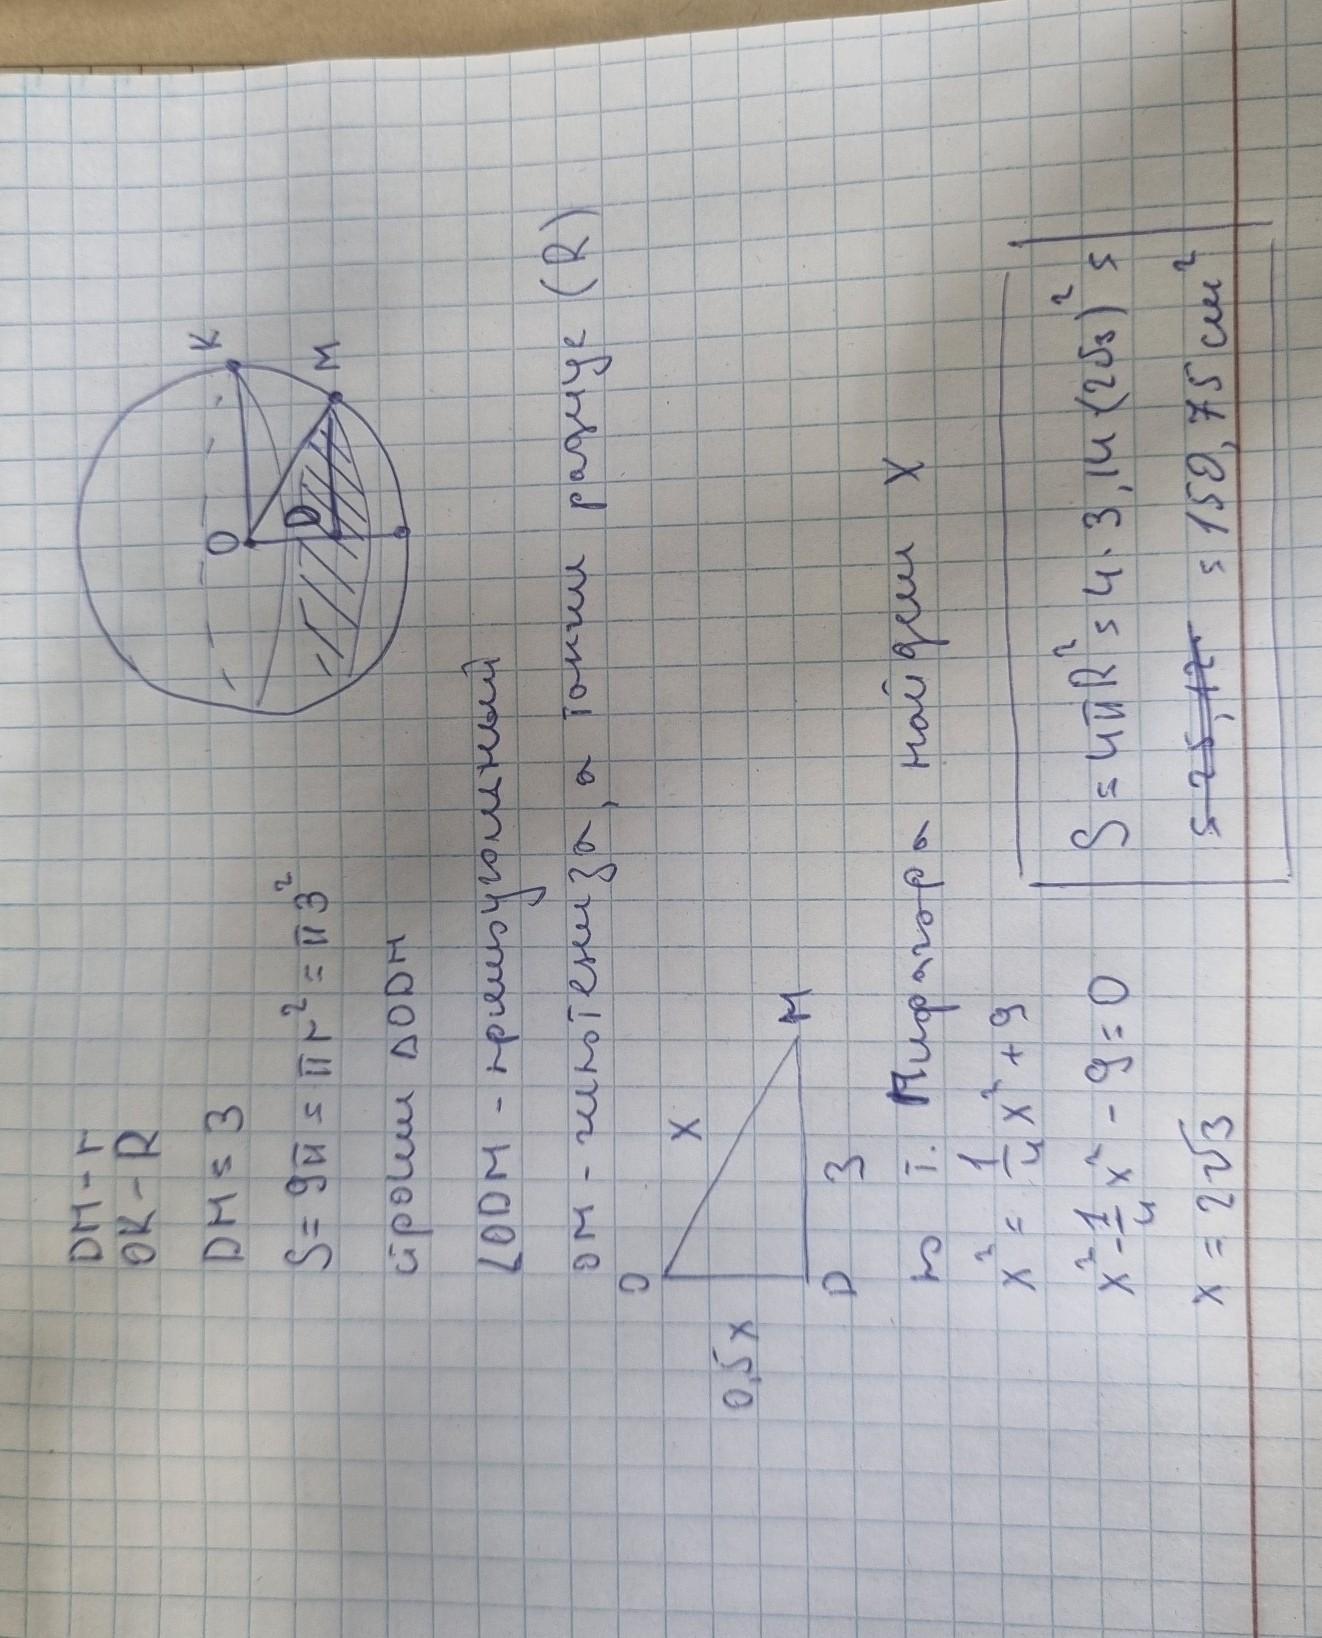 DM - r
OK - R
DM = 3
S = 9π = πr² = π3²
строим ΔODM
∠ODM - прямоугольный
OM - гипотенуза, а также радиус (R)
O
K
D
M
O
X
0,5x
D
3
M
По т. Пифагора найдем X
x² = 1/4 x² + 9
x² - 1/4 x² - 9 = 0
x = 2√3
S = 4πR² = 4 · 3,14 · (2√3)² =
= 25,12 = 150,75 см²